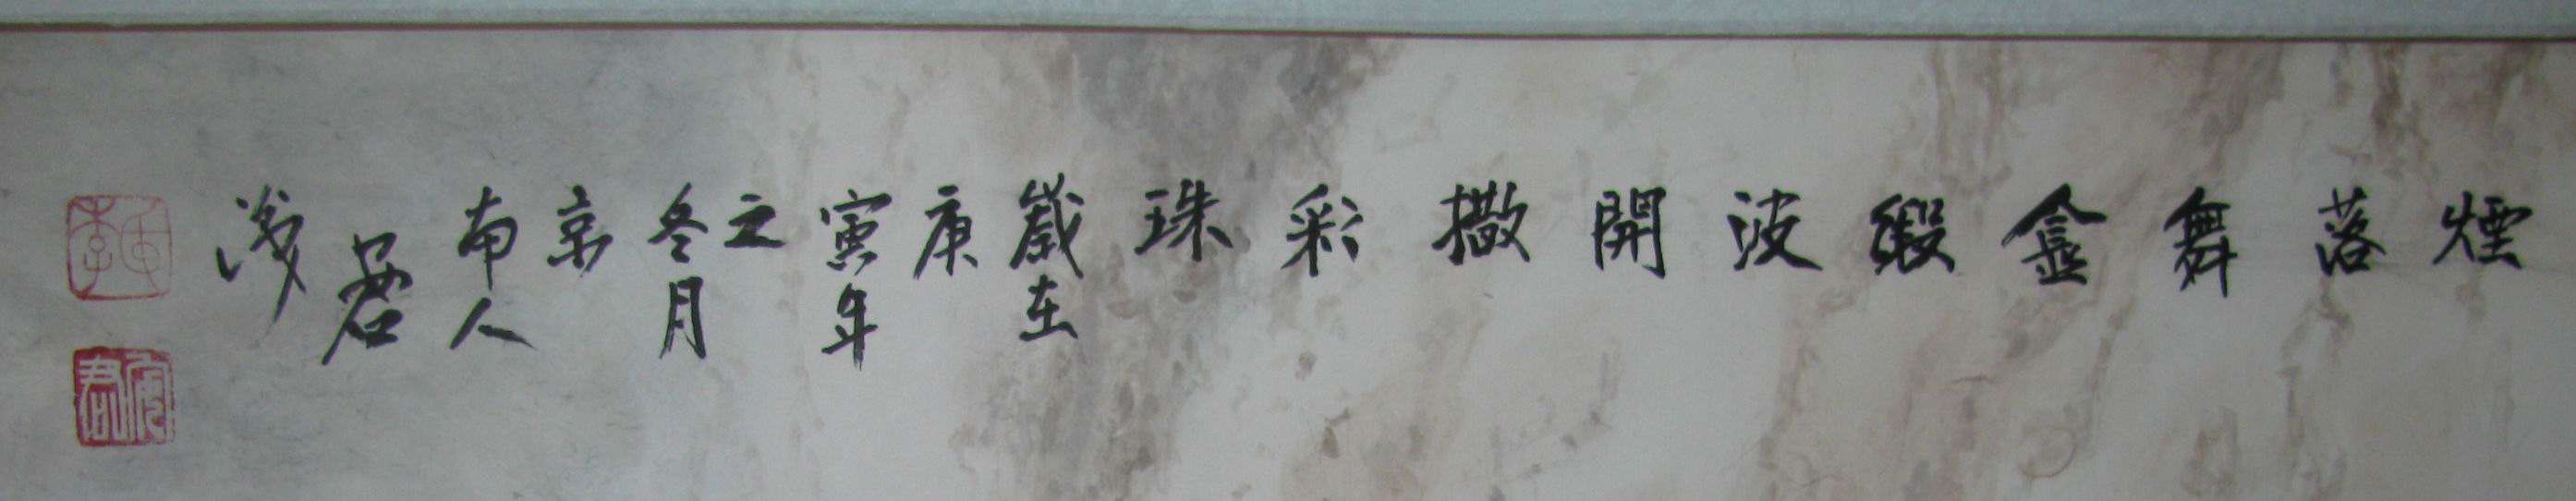 煙落舞金緞波開撒彩珠
歲在庚寅年之冬月
京南人
君